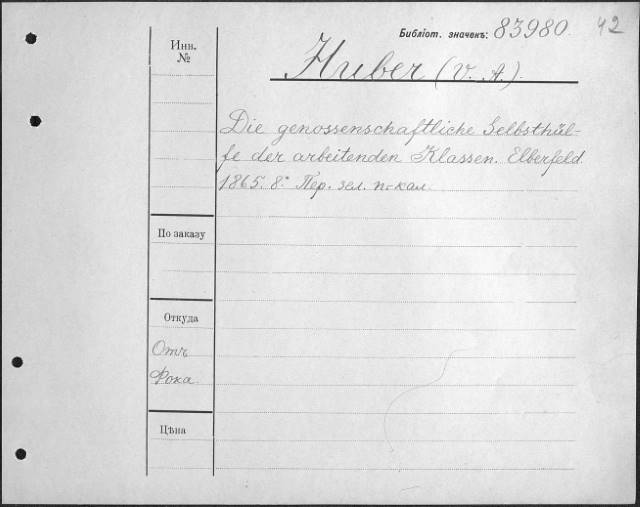 Библіот. значекъ: 83980. 42
Инв.
№
Huber (V. A.).
Die genossenschaftliche Selbsthül-
fe der arbeitenden Klassen. Elberfeld
1865. 8.° Пер. зел. п-кал.
По заказу
Откуда
Отъ
Фока.
Цѣна